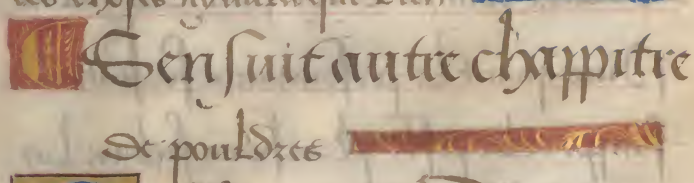 Sensuit autre chappitre
de pouldres